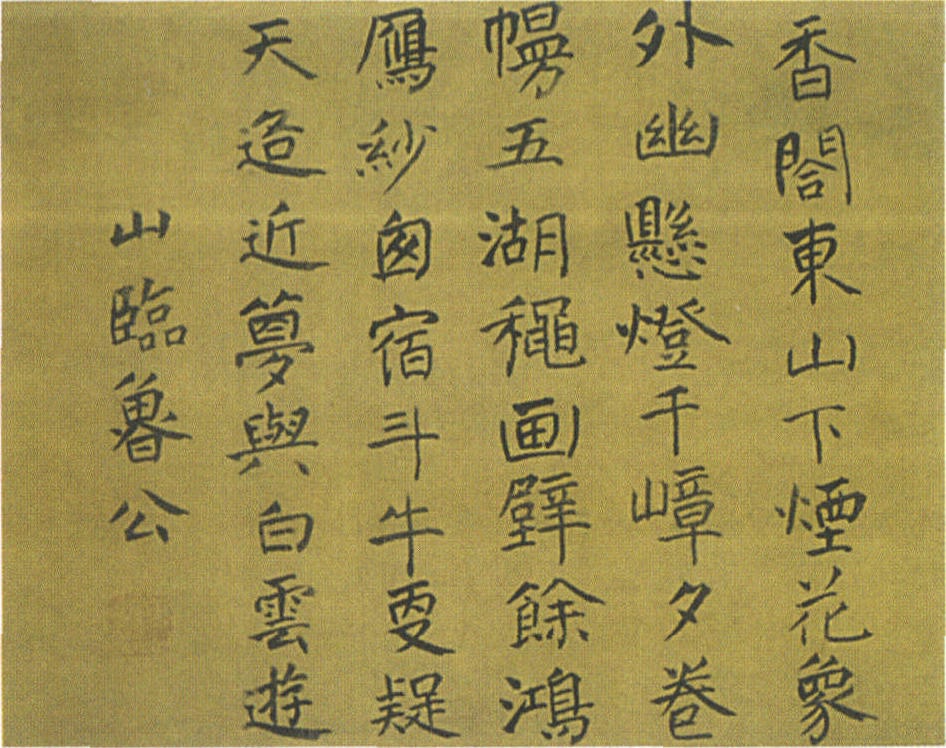 香閤東山下煙花象
外幽懸燈千嶂夕卷
幔五湖秋画壁餘鴻
鴈紗窗宿斗牛更疑
天路近夢與白雲遊
山臨魯公